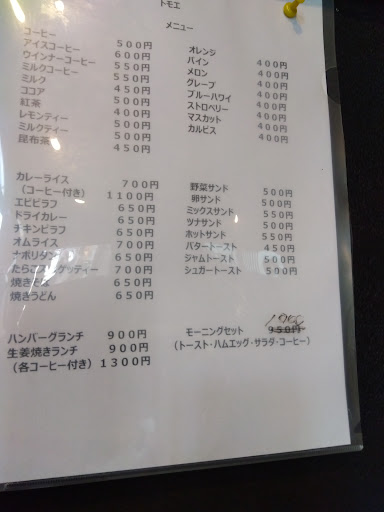 トモエ
メニュー
コーヒー 500円
アイスコーヒー 500円
ウインナーコーヒー 600円
ミルクコーヒー 550円
ミルク 450円
ココア 550円
紅茶 500円
レモンティー 500円
ミルクティー 500円
昆布茶 450円
オレンジ 400円
パイン 400円
メロン 400円
グレープ 400円
ブルーハワイ 400円
ストロベリー 400円
マスカット 400円
カルピス 400円
カレーライス 700円
(コーヒー付き) 1100円
エビピラフ 650円
ドライカレー 650円
チキンピラフ 650円
オムライス 700円
ナポリタン 650円
たらこスパゲッティー 700円
焼きそば 650円
焼きうどん 650円
野菜サンド 500円
卵サンド 500円
ミックスサンド 550円
ツナサンド 500円
ホットサンド 550円
バタートースト 450円
ジャムトースト 500円
シュガートースト 500円
ハンバーグランチ 900円
生姜焼きランチ 900円
(各コーヒー付き) 1300円
モーニングセット 950円
(トースト・ハムエッグ・サラダ・コーヒー)